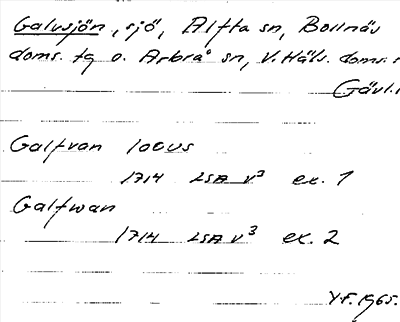 Galvsjön, sjö, Alfta sn, Bollnäs
doms. tg o. Arbrå sn, V. Häls. doms.
Gävl.
Galfvan 100 US
1714 LSA V3 ex. 1
Galfwan
1714 LSA V3 ex. 2
YF. 1965.